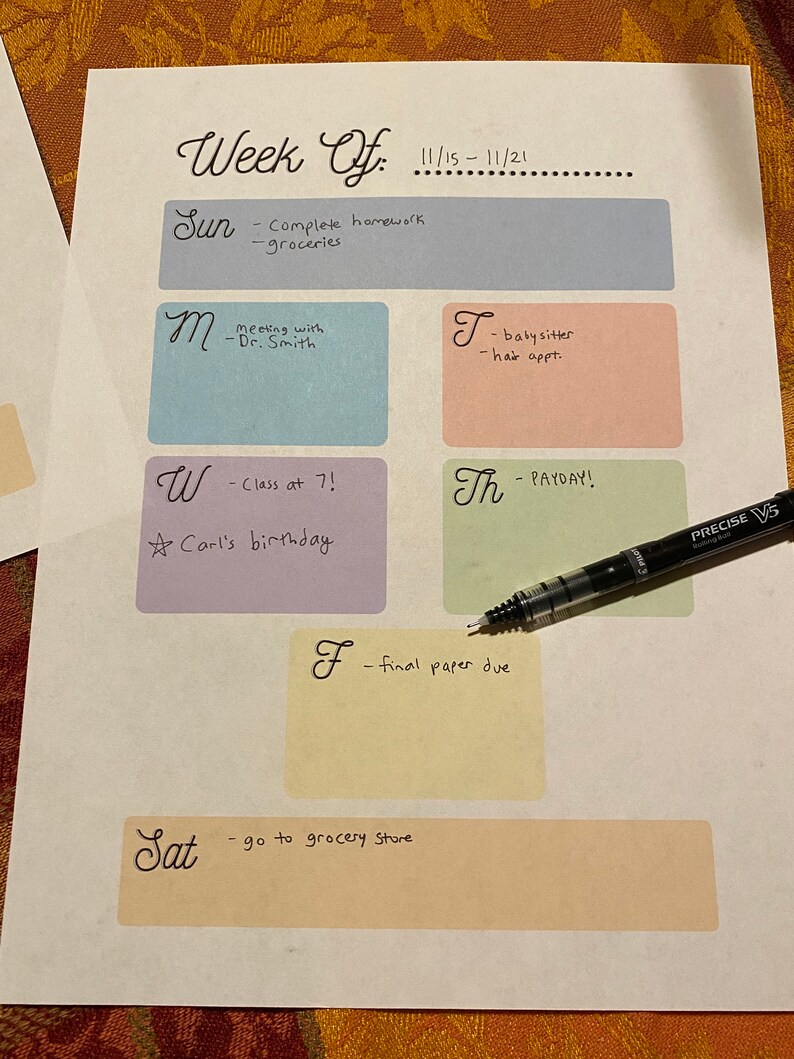 Week Of: 11/15 - 11/21
Sun - Complete homework
- groceries
M meeting with
- Dr. Smith
T - babysitter
- hair appt.
W - Class at 7!
☆ Carl's birthday
Th - PAYDAY!
PRECISE V5
Rolling Ball
PILOT
F - final paper due
Sat - go to grocery store